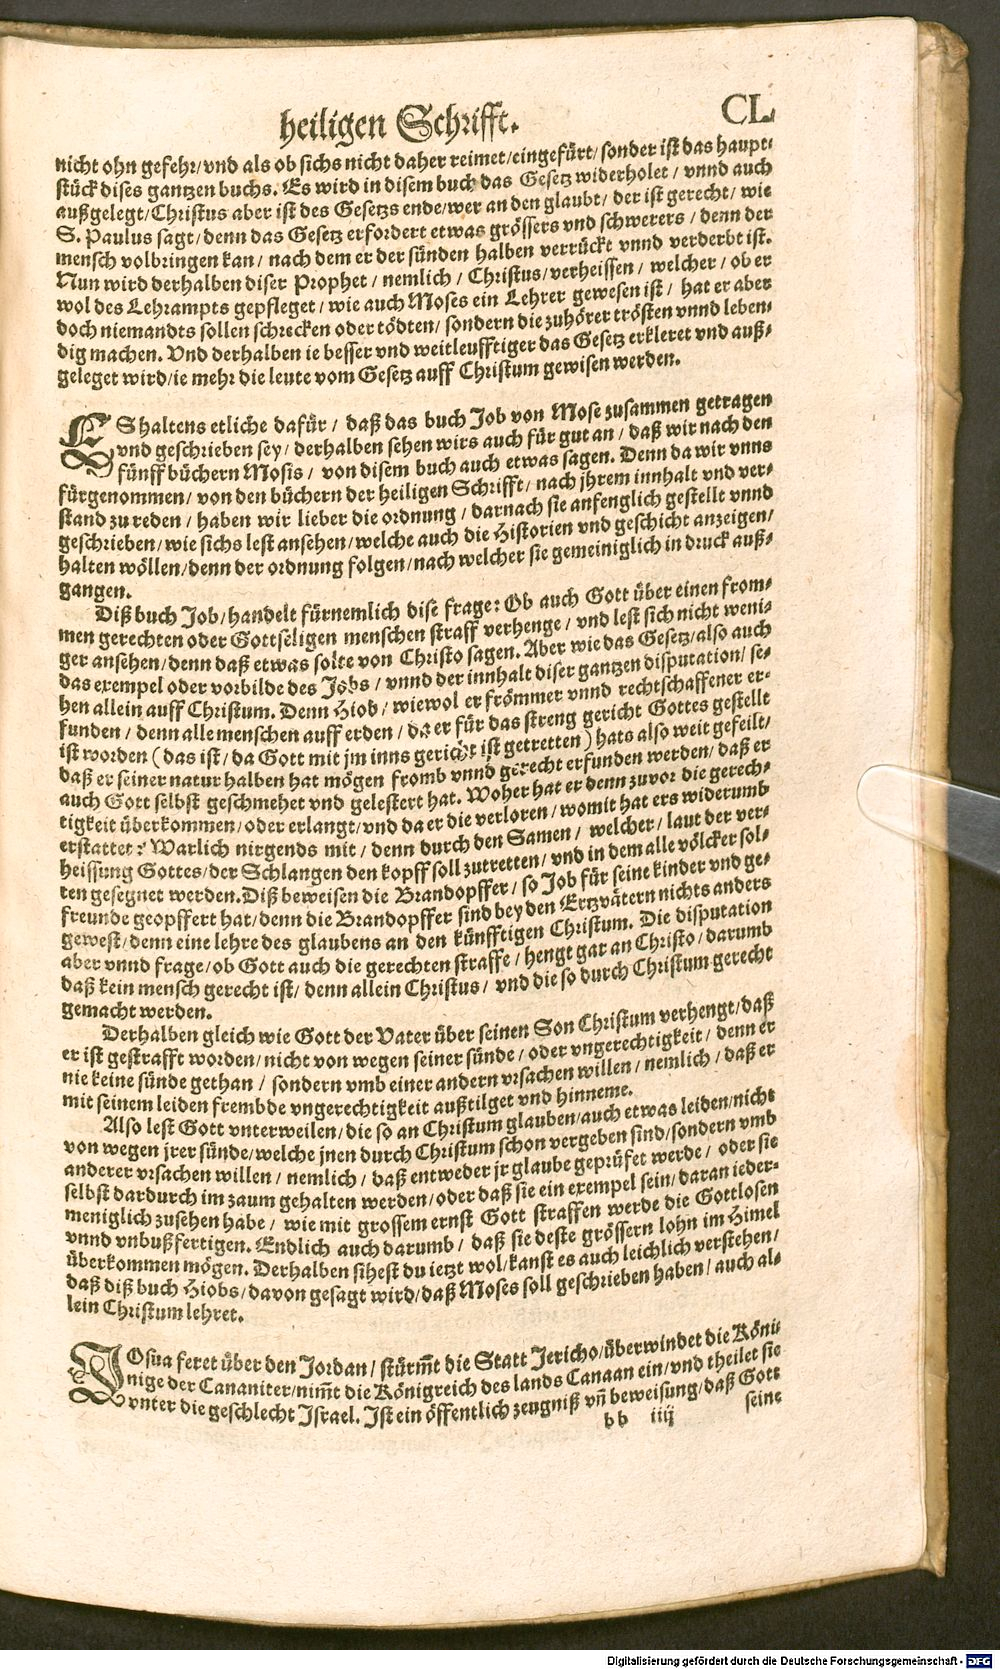 heiligen Schrifft. CL
nicht ohn gefehr/vnd als ob sichs nicht daher reimet/eingefürt/sonder ist das haupt-
stück dises gantzen buchs. Es wird in disem buch das Gesetz widerholet/vnnd auch
außgelegt/Christus aber ist des Gesetzs ende/wer an den glaubt/der ist gerecht/wie
S. Paulus sagt/denn das Gesetz erfordert etwas grössers vnd schwerers/denn der
mensch volbringen kan/nach dem er der sünden halben verrückt vnnd verderbt ist.
Nun wird derhalben diser Prophet/nemlich/Christus/verheissen/welcher/ob er
wol des Lehrampts gepfleget/wie auch Moses ein Lehrer gewesen ist/hat er aber
doch niemandts sollen schrecken oder tödten/sondern die zuhörer trösten vnnd leben-
dig machen. Vnd derhalben ie besser vnd weitleufftiger das Gesetz erkleret vnd auß-
geleget wird/ie mehr die leute vom Gesetz auff Christum gewisen werden.
ES haltens etliche dafür/daß das buch Job von Mose zusammen getragen
vnd geschrieben sey/derhalben sehen wirs auch für gut an/daß wir nach den
fünff büchern Mosis/von disem buch auch etwas sagen. Denn da wir vnns
fürgenommen/von den büchern der heiligen Schrifft/nach jhrem innhalt vnd ver-
stand zu reden/haben wir lieber die ordnung/darnach sie anfenglich gestellt vnnd
geschrieben/wie sichs lest ansehen/welche auch die Historien vnd geschicht anzeigen/
halten wöllen/denn der ordnung folgen/nach welcher sie gemeiniglich in druck auß-
gangen.
Diß buch Job/handelt fürnemlich dise frage: Ob auch Gott über einen from-
men gerechten oder Gottseligen menschen straff verhenge/vnd lest sich nicht weni-
ger ansehen/denn daß etwas solte von Christo sagen. Aber wie das Gesetz/also auch
das exempel oder vorbilde des Jobs/vnnd der innhalt diser gantzen disputation/se-
hen allein auff Christum. Denn Hiob/wiewol er frömmer vnnd rechtschaffener er-
funden/denn alle menschen auff erden/da er für das streng gericht Gottes gestellt
ist worden (das ist/da Gott mit jm inns gericht ist getretten) hats also weit gefeilt/
daß er seiner natur halben hat mögen fromb vnnd gerecht erfunden werden/daß er
auch Gott selbst geschmehet vnd gelestert hat. Woher hat er denn zuvor die gerech-
tigkeit überkommen/oder erlangt/vnd da er die verloren/womit hat ers widerumb
erstattet? Warlich nirgends mit/denn durch den Samen/welcher/laut der ver-
heissung Gottes/der Schlangen den kopff soll zutretten/vnd in dem alle völcker sol-
ten gesegnet werden. Diß beweisen die Brandopffer/so Job für seine kinder vnd ge-
freunde geopffert hat/denn die Brandopffer sind bey den Ertzvätern nichts anders
gewest/denn eine lehre des glaubens an den künfftigen Christum. Die disputation
aber vnnd frage/ob Gott auch die gerechten straffe/hengt gar an Christo/darumb
daß kein mensch gerecht ist/denn allein Christus/vnd die so durch Christum gerecht
gemacht werden.
Derhalben gleich wie Gott der Vater über seinen Son Christum verhengt/daß
er ist gestrafft worden/nicht von wegen seiner sünde/oder vngerechtigkeit/denn er
nie keine sünde gethan/sondern vmb einer andern vrsachen willen/nemlich/daß er
mit seinem leiden frembde vngerechtigkeit außtilget vnd hinneme.
Also lest Gott vnterweilen/die so an Christum glauben/auch etwas leiden/nicht
von wegen jrer sünde/welche jnen durch Christum schon vergeben sind/sondern vmb
anderer vrsachen willen/nemlich/daß entweder jr glaube geprüfet werde/oder sie
selbst dardurch im zaum gehalten werden/oder daß sie ein exempel sein/daran ieder-
meniglich zusehen habe/wie mit grossem ernst Gott straffen werde die Gottlosen
vnnd vnbußfertigen. Endlich auch darumb/daß sie deste grössern lohn im Himel
überkommen mögen. Derhalben sihest du ietzt wol/kanst es auch leichlich verstehen/
daß diß buch Hiobs/davon gesagt wird/daß Moses soll geschrieben haben/auch al-
lein Christum lehret.
JOsua feret über den Jordan/stürm̃t die Statt Jericho/überwindet die Köni-
nige der Cananiter/nim̃t die Königreich des lands Canaan ein/vnd theilet sie
vnter die geschlecht Israel. Ist ein öffentlich zeugniß vñ beweisung/daß Gott
bb iiij seine
Digitalisierung gefördert durch die Deutsche Forschungsgemeinschaft - DFG